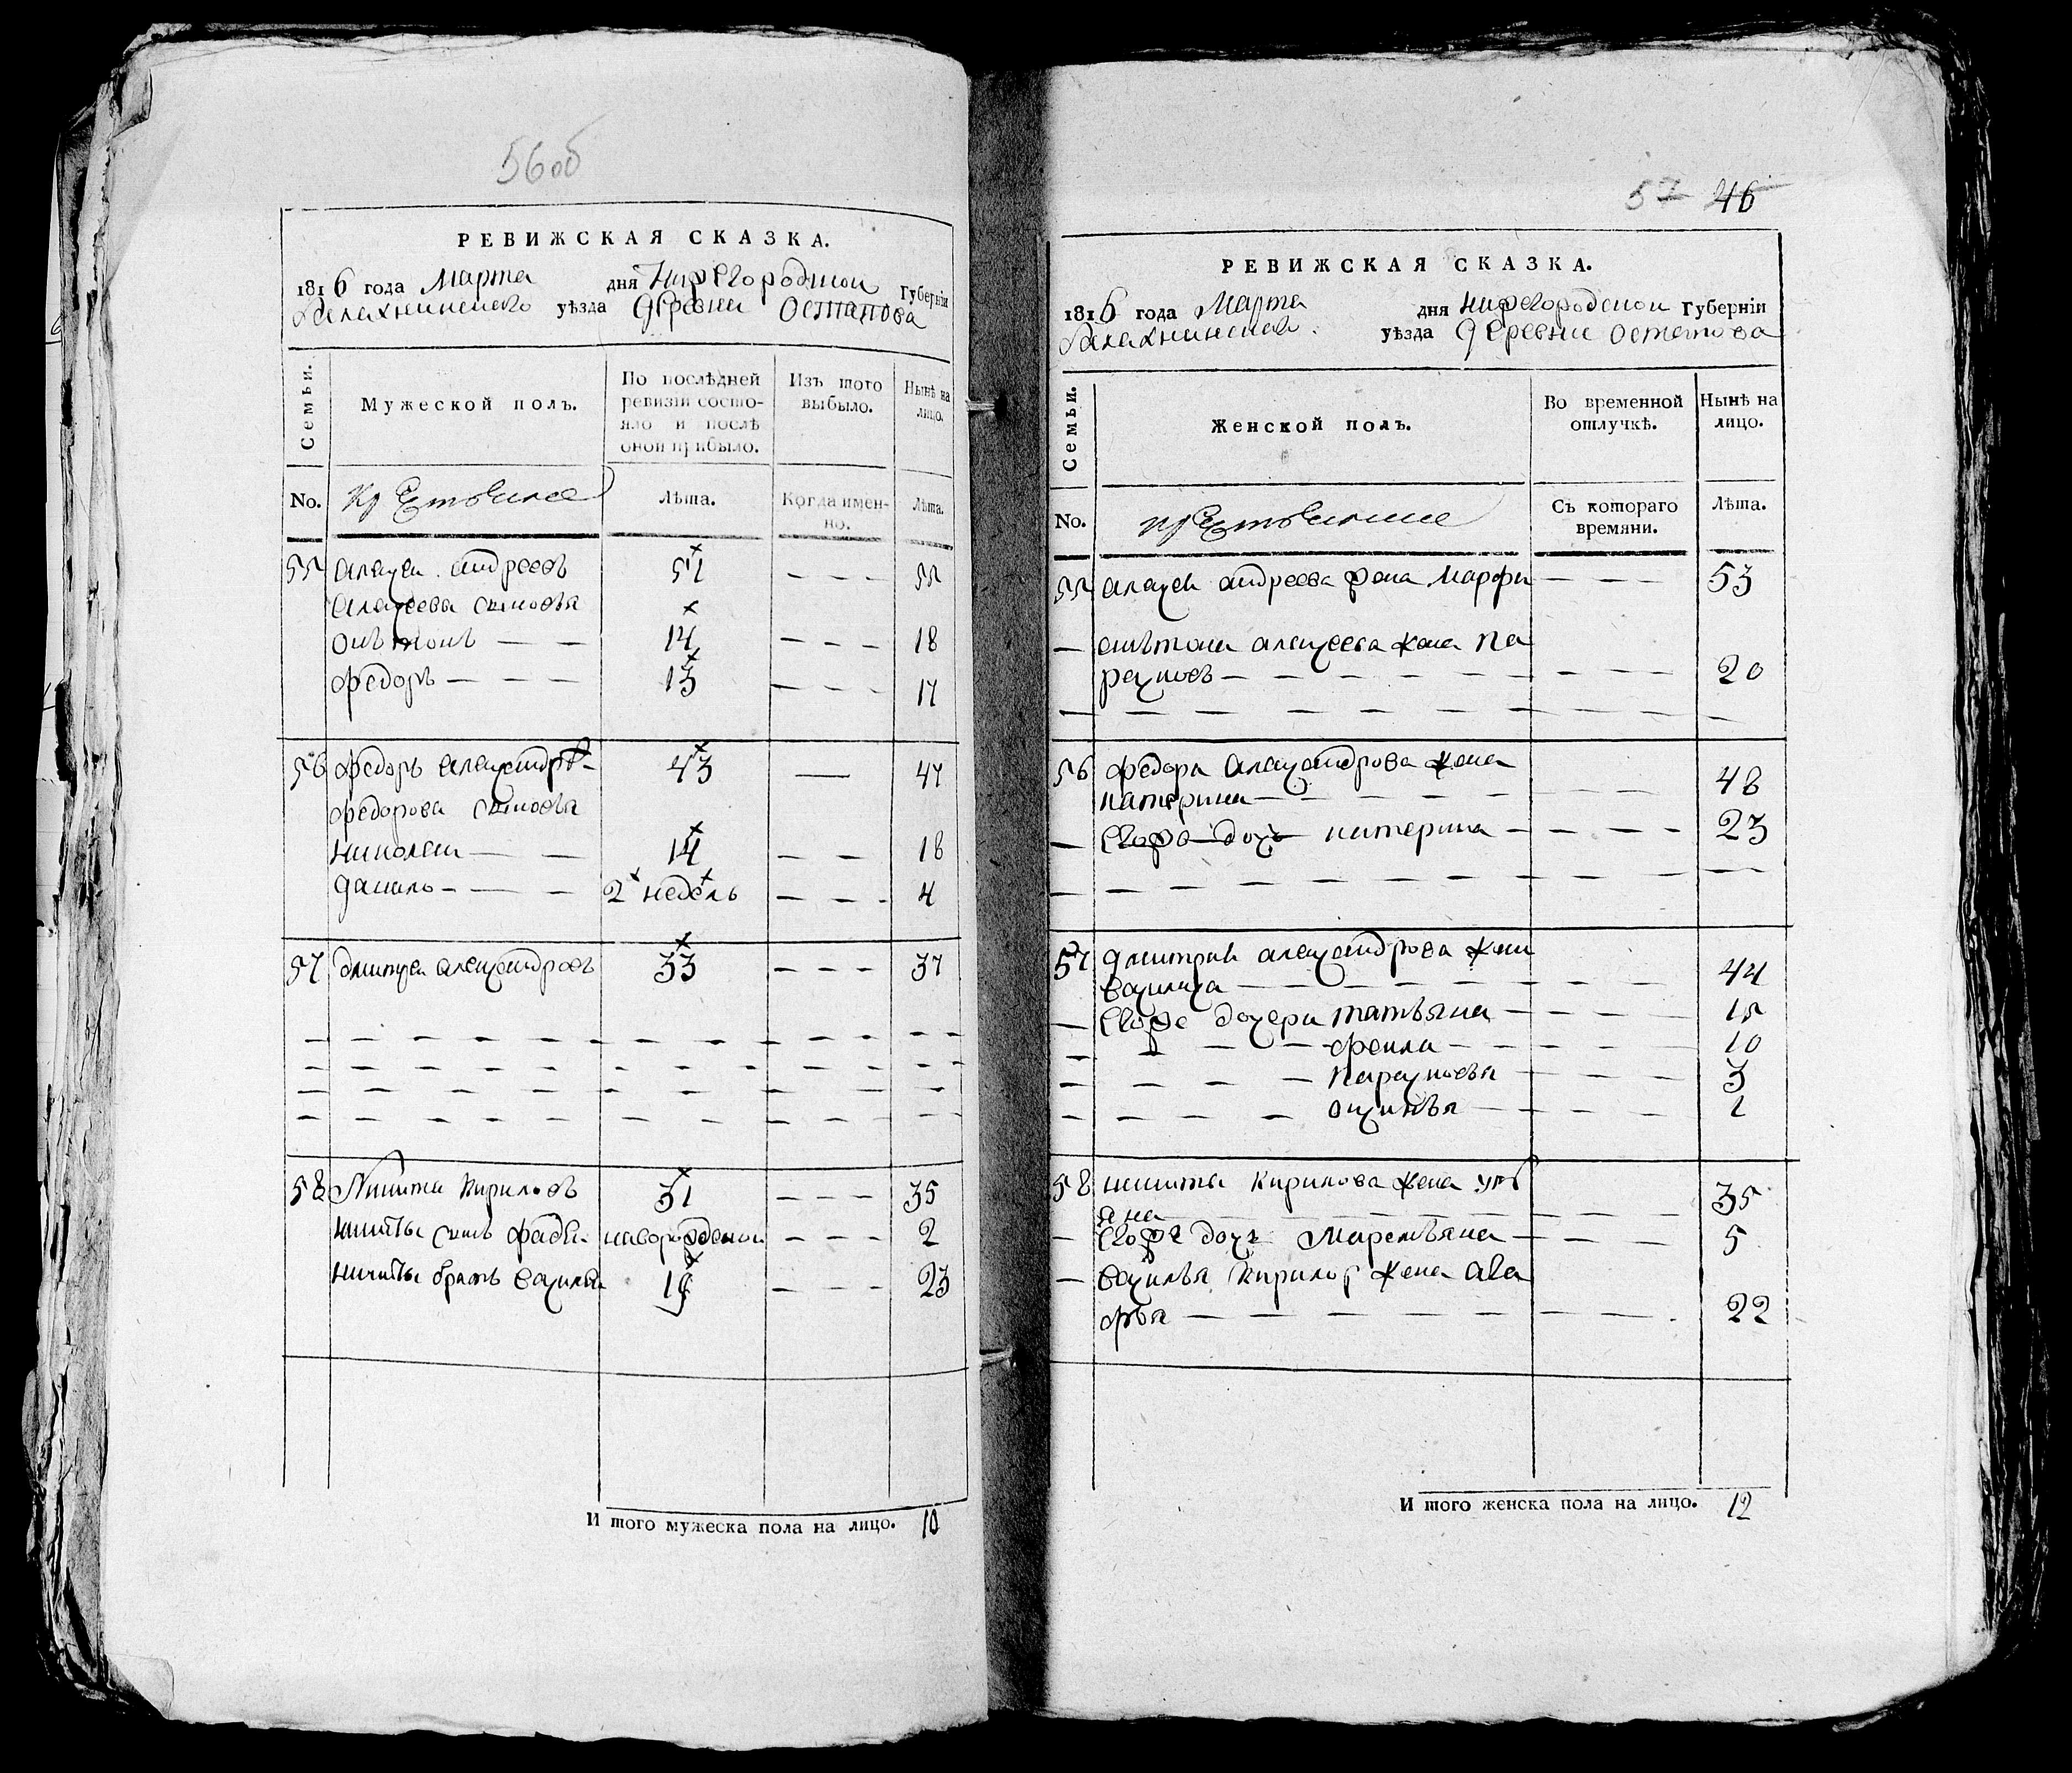 56 об
РЕВИЖСКАЯ СКАЗКА.
1816 года Марта дня Нижегородской Губерніи
Балахнинского уѣзда деревни Остапова
Семьи. Мужеской полъ. По послѣдней ревизіи состояло и послѣ оной прибыло. Изъ того выбыло. Нынѣ на лицо.
No. Крестьяне Лѣта. Когда именно. Лѣта.
55 алексеи андреевъ 51 55
алексеева сыновья
онътонъ 14 18
федоръ 13 17
56 федоръ александровъ 43 47
федорова сыновья
николаи 14 18
данило 2 недель 4
57 дмитреи александровъ 33 37
58 Никита кириловъ 31 35
никиты сынъ фадеи новорожденои 2
никиты братъ василеи 19 23
И того мужеска пола на лицо. 10
57 46
РЕВИЖСКАЯ СКАЗКА.
1816 года Марта дня нижегородскои Губерніи
балахнинской уѣзда деревни остапова
Семьи. Женской полъ. Во временной отлучкѣ. Нынѣ на лицо.
No. крестьянки Съ котораго времяни. Лѣта.
55 алексеи андреева жена марфа 53
онътона алексеева жена па
расковь 20
56 федора александрова жена
катерина 48
евоже дочь катерина 23
57 дмитрия александрова жена
василиса 44
евоже дочери татьяна 15
фекла 10
парасковья 3
оксинья 1
58 никиты кирилова жена уль
яна 35
евоже дочь маремьяна 5
василья кирилов жена ав
фья 22
И того женска пола на лицо. 12